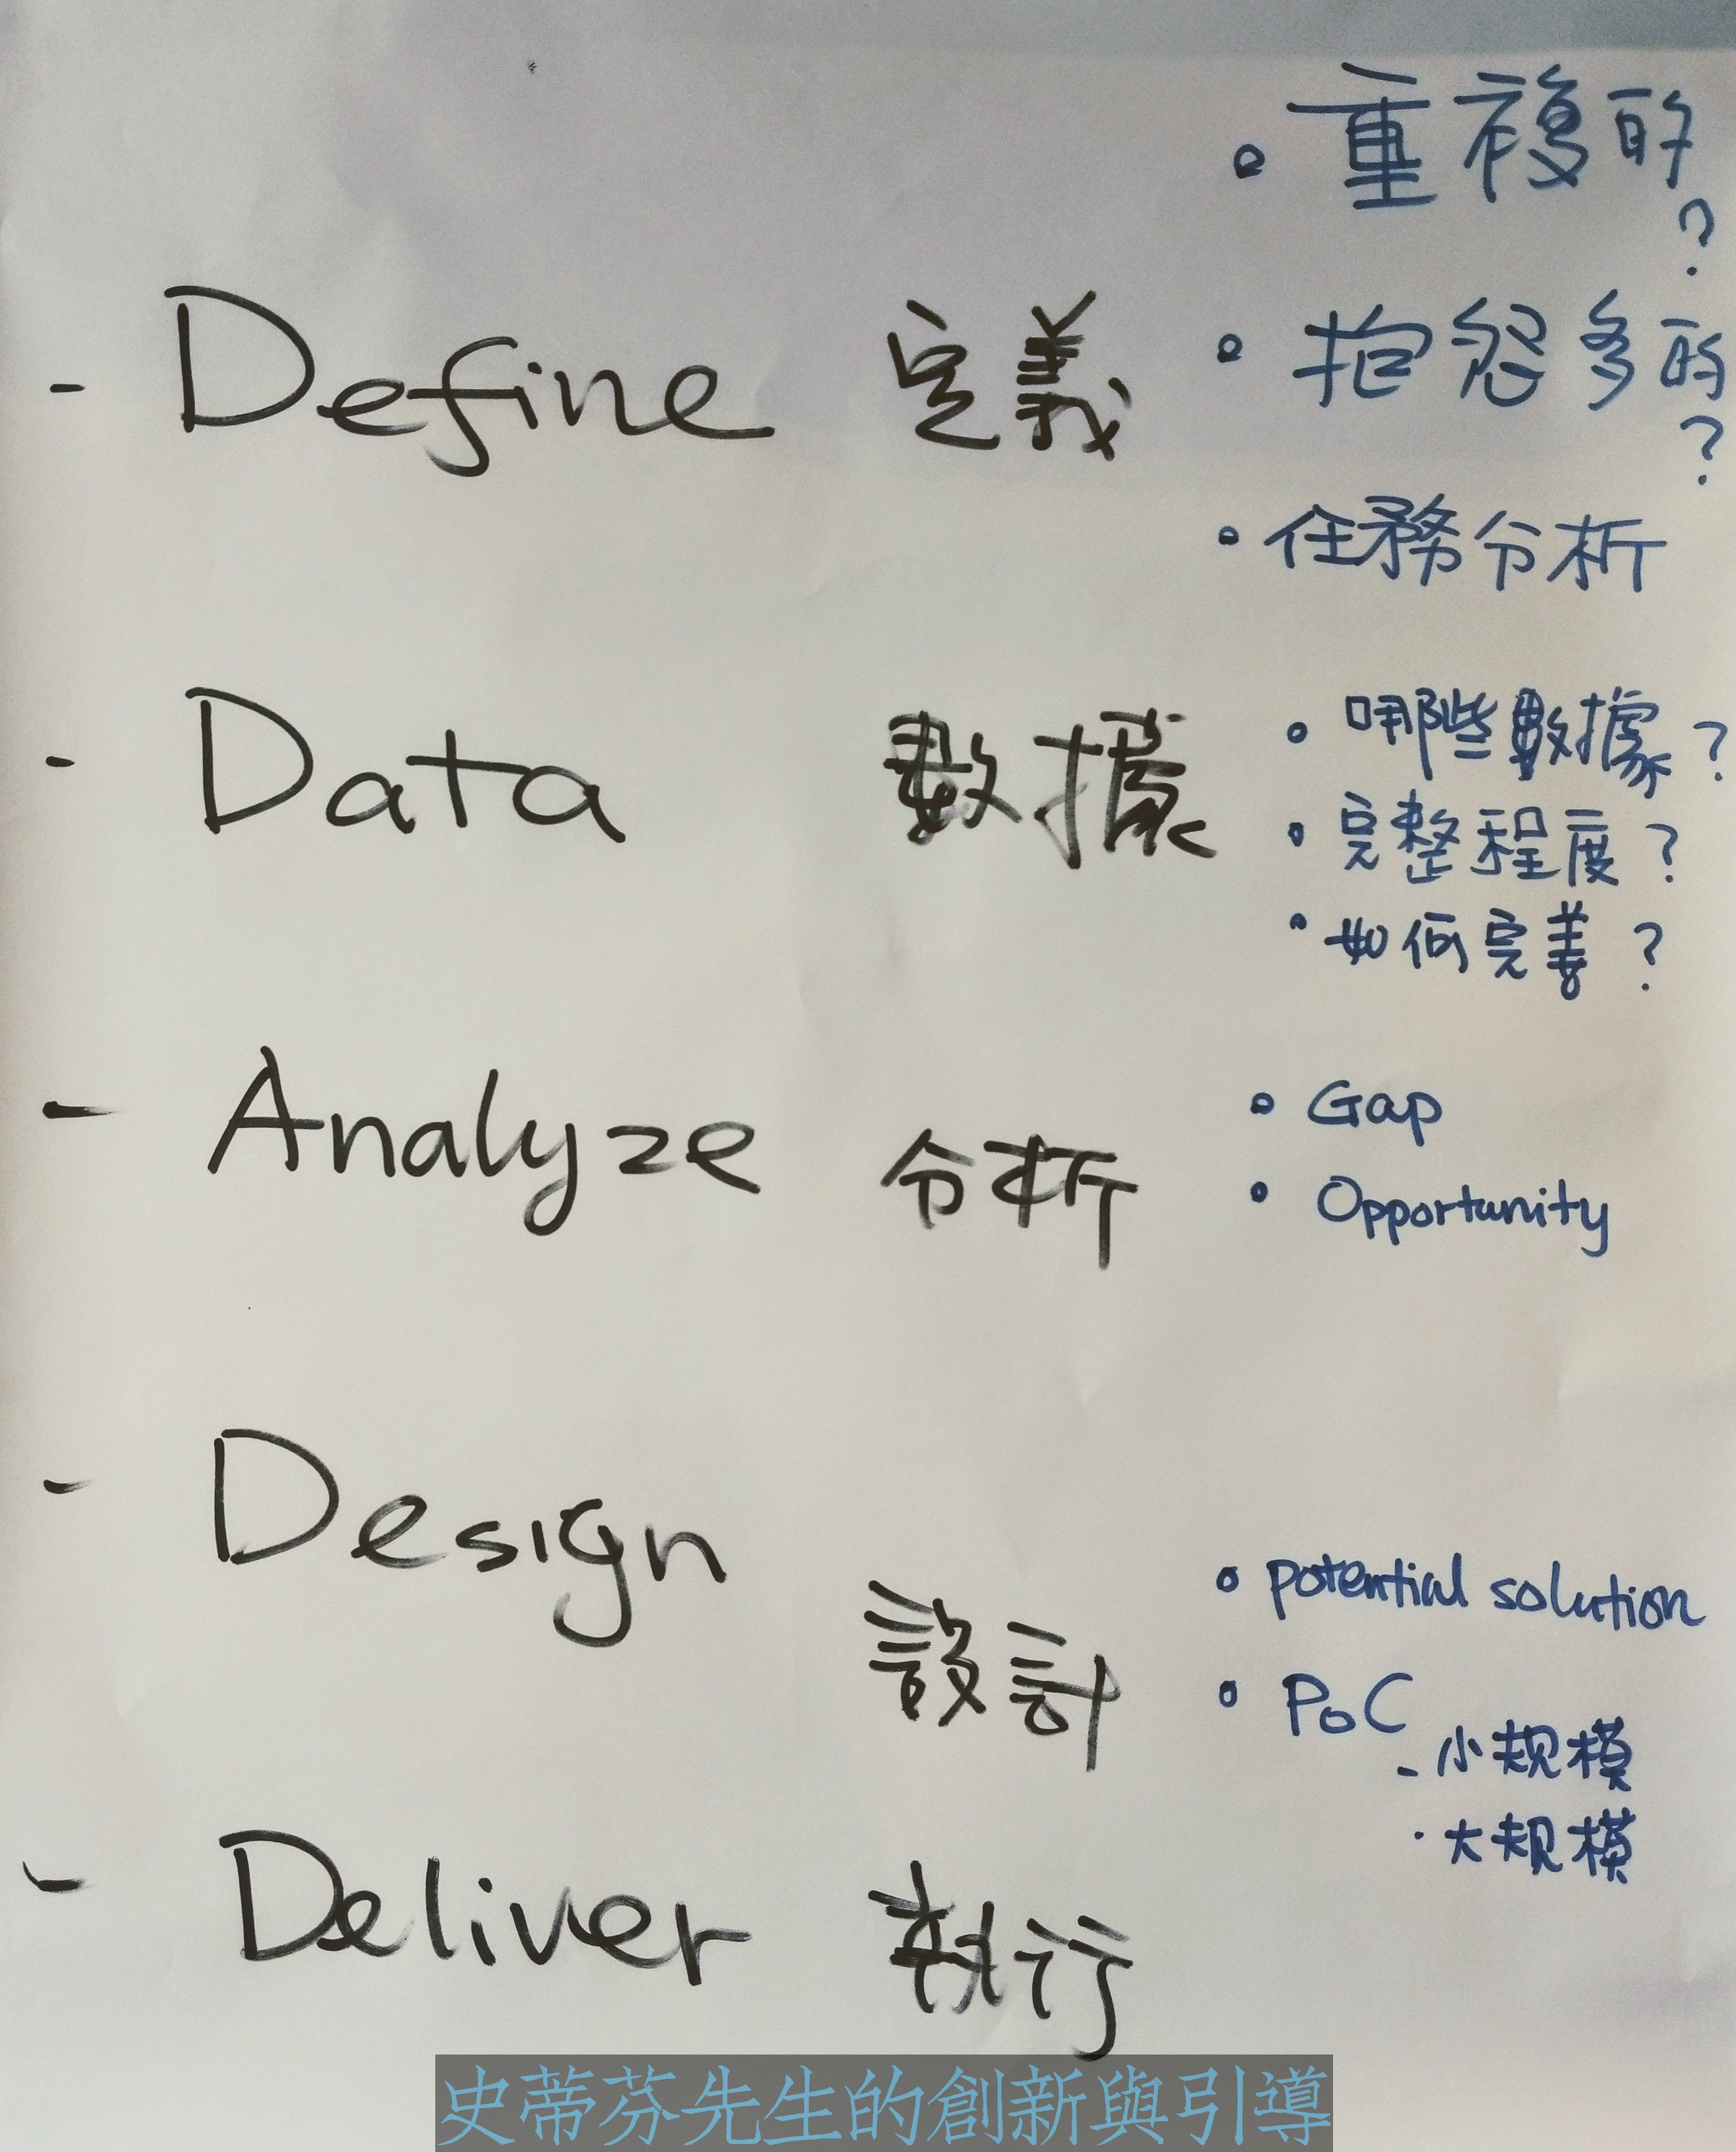 • 重複的?
- Define 定義
• 抱怨多的?
• 任務分析
- Data 數據
• 哪些數據?
• 完整程度?
• 如何完善?
- Analyze 分析
• Gap
• Opportunity
- Design 設計
• potential solution
• PoC
- 小规模
· 大规模
- Deliver 執行
史蒂芬先生的創新與引導